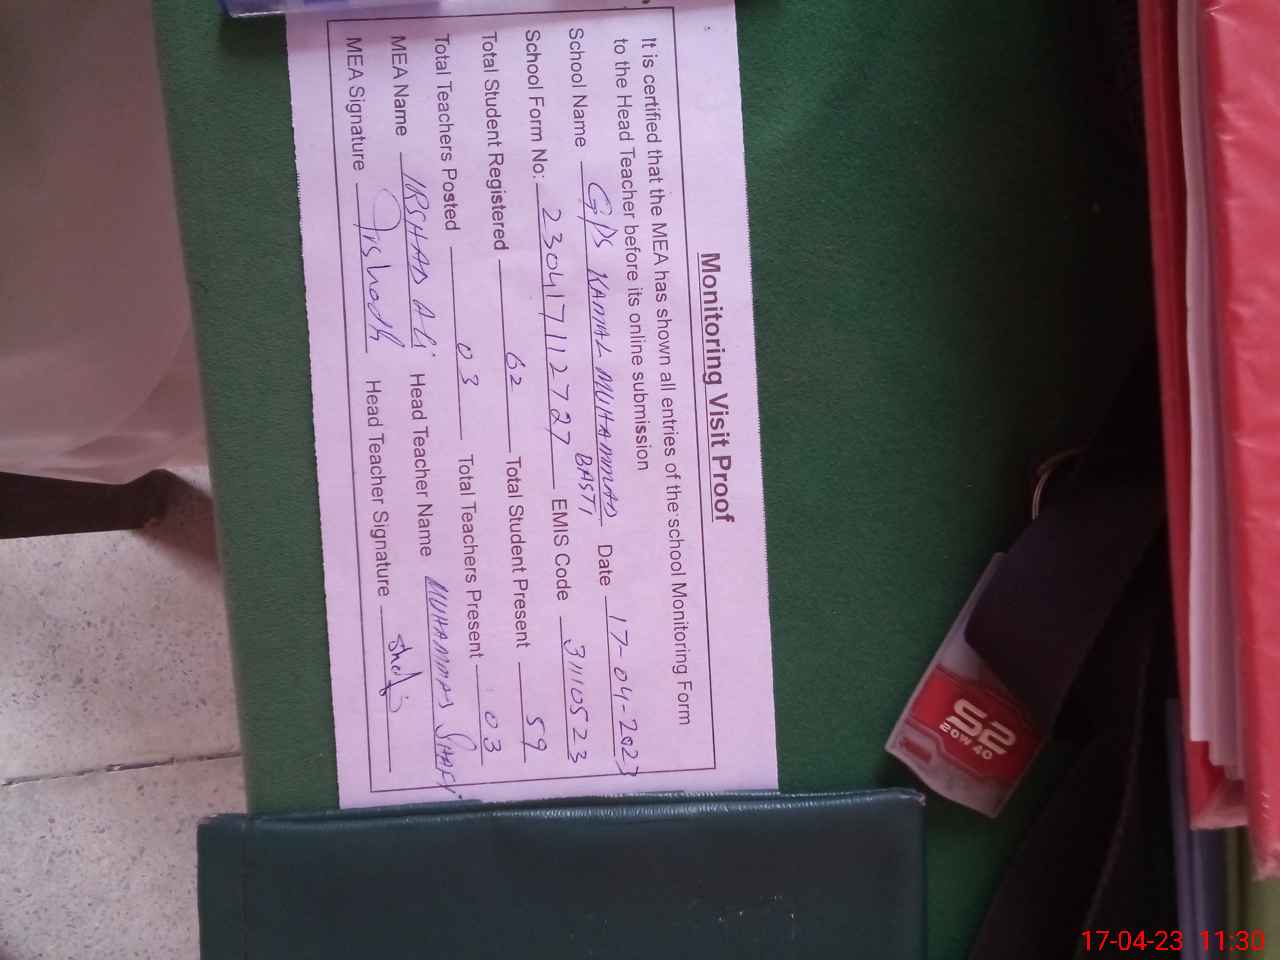 Monitoring Visit Proof
It is certified that the MEA has shown all entries of the school Monitoring Form
to the Head Teacher before its online submission
School Name GPS KAMAL MUHAMMAD BASTI Date 17-04-2023
School Form No: 230417112727 EMIS Code 31110523
Total Student Registered 62 Total Student Present 59
Total Teachers Posted 03 Total Teachers Present 03
MEA Name IRSHAD Ali Head Teacher Name MUHAMMAD SHAFI
MEA Signature Irshadh Head Teacher Signature Shafi
S2
20W 40
17-04-23 11:30